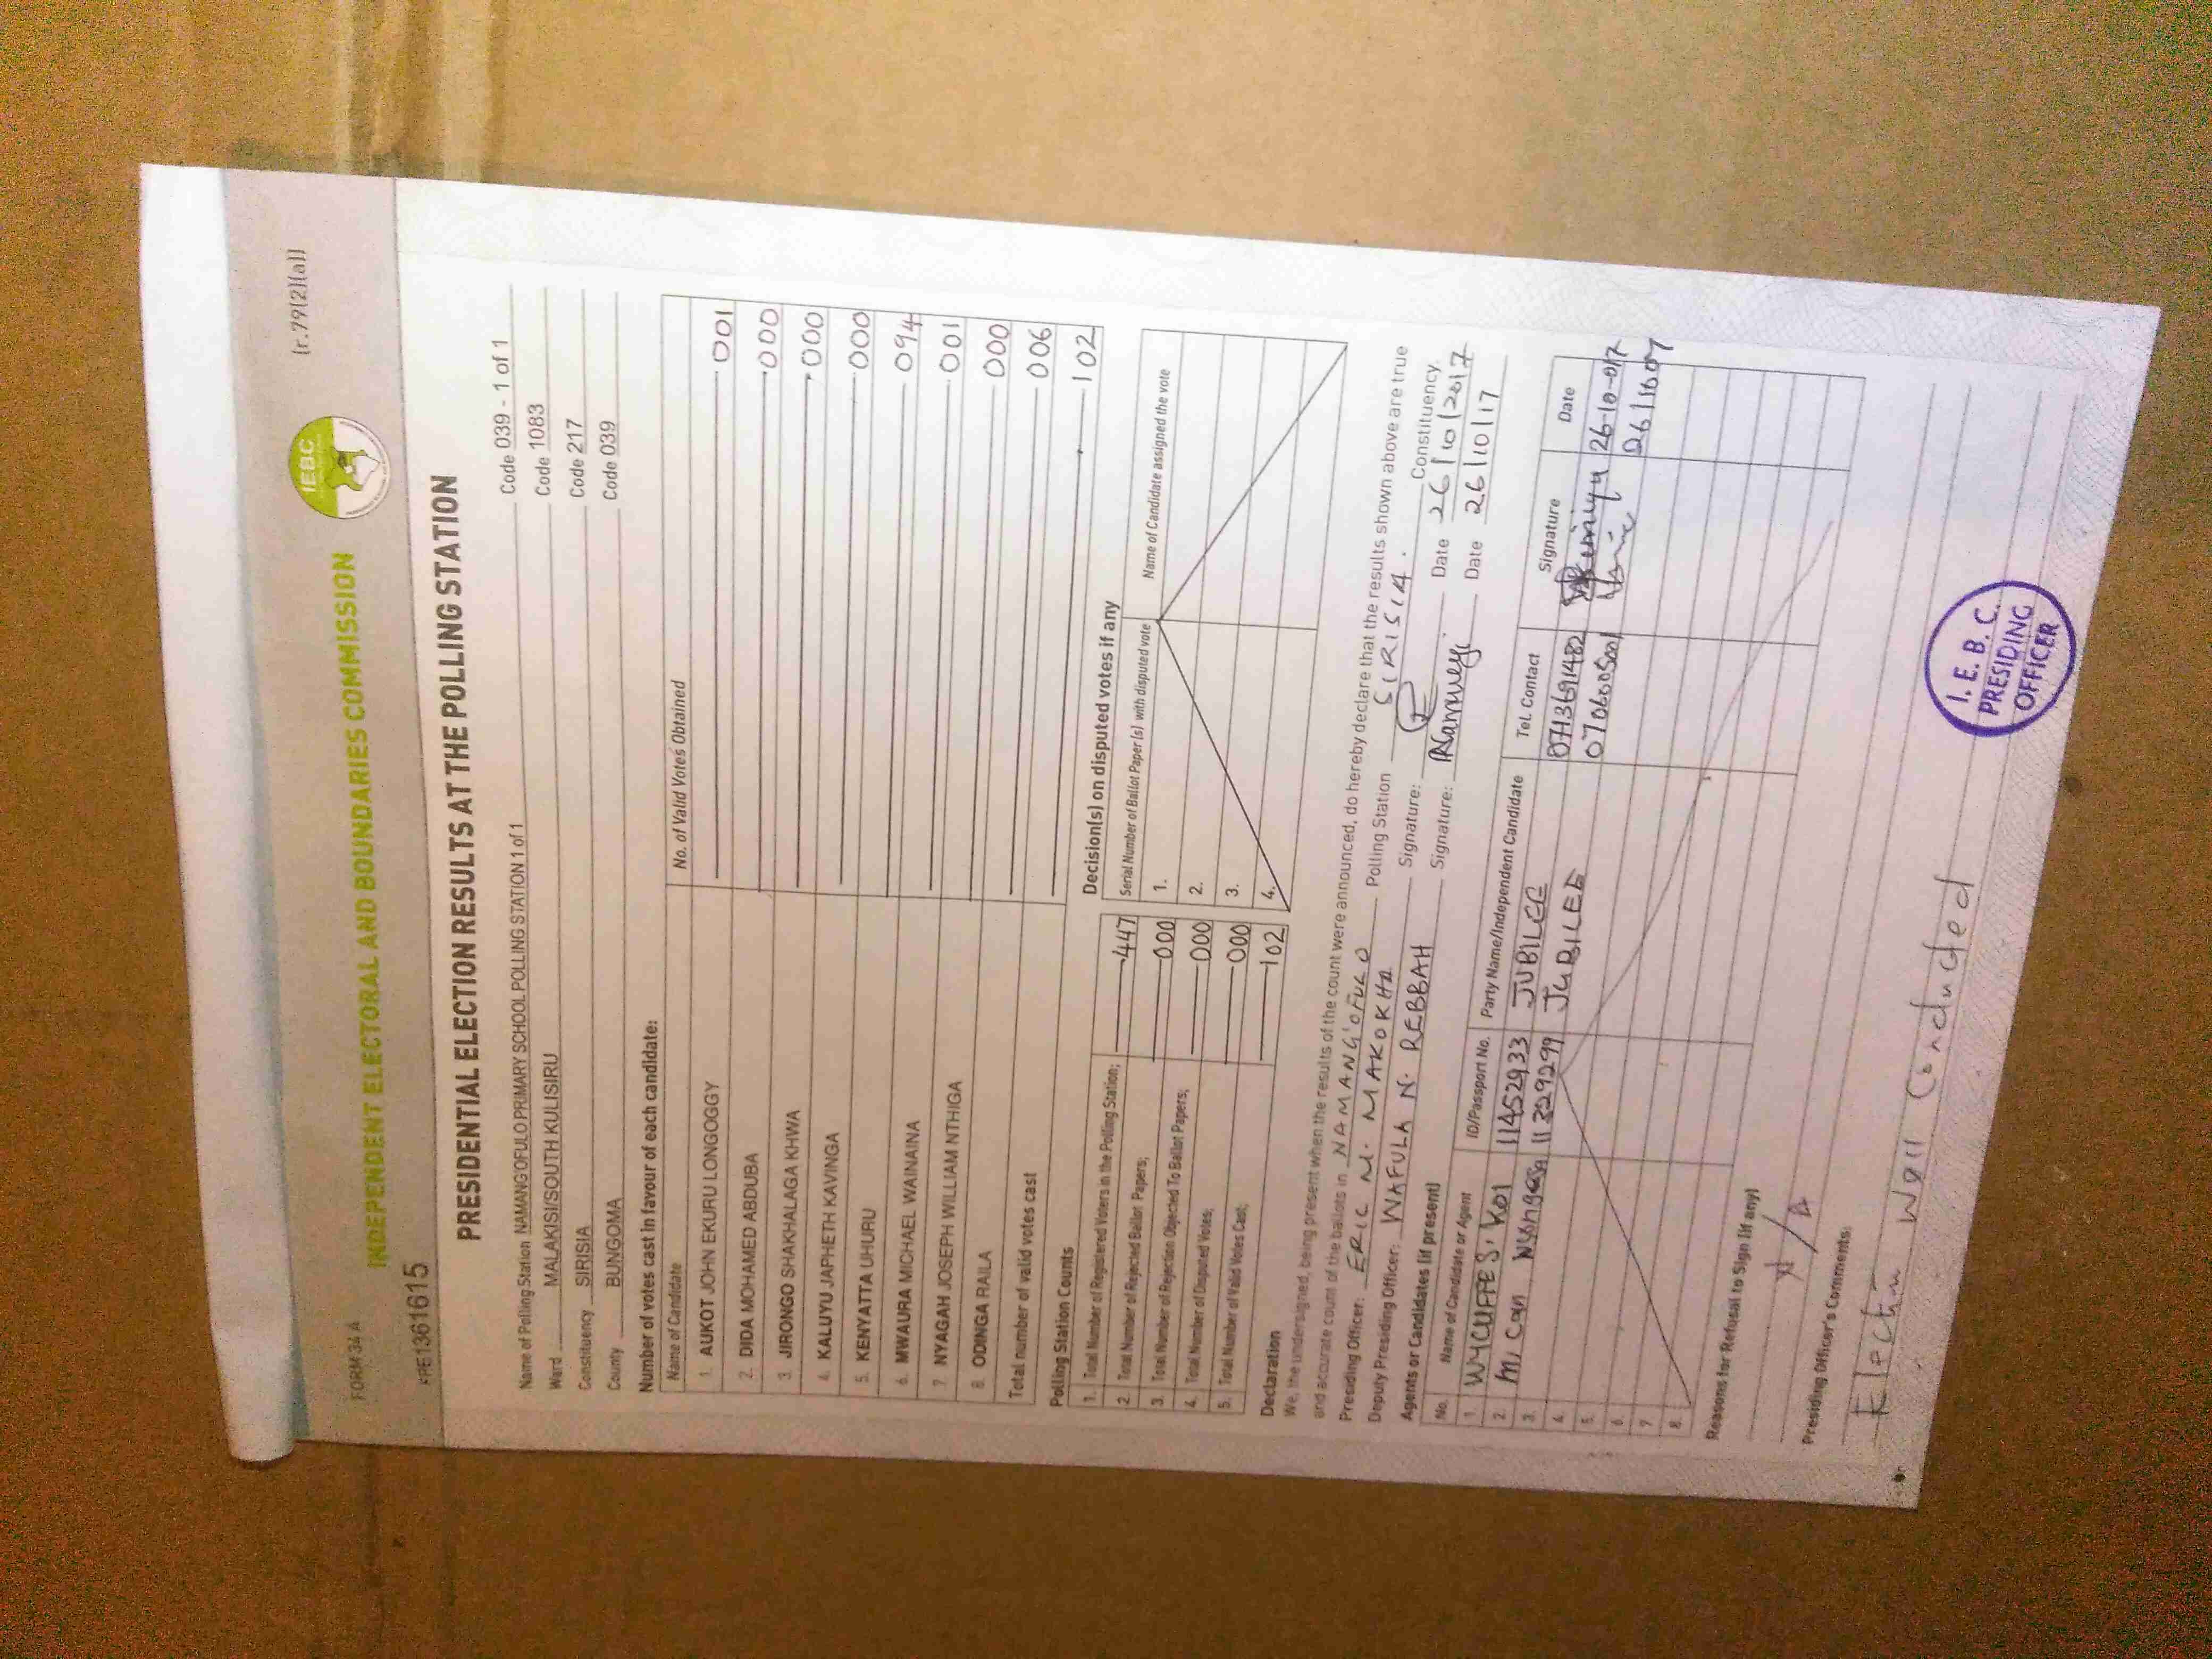 FORM 34 A
(r.79(2)(a))
INDEPENDENT ELECTORAL AND BOUNDARIES COMMISSION
IEBC
PRE1361615
PRESIDENTIAL ELECTION RESULTS AT THE POLLING STATION
Name of Polling Station NAMANGOFULO PRIMARY SCHOOL POLLING STATION 1 of 1 Code 039 - 1 of 1
Ward MALAKISI/SOUTH KULISIRU Code 1083
Constituency SIRISIA Code 217
County BUNGOMA Code 039
Number of votes cast in favour of each candidate:
Name of Candidate No. of Valid Votes Obtained
1. AUKOT JOHN EKURU LONGOGGY 001
2. DIDA MOHAMED ABDUBA 000
3. JIRONGO SHAKHALAGA KHWA 000
4. KALUYU JAPHETH KAVINGA 000
5. KENYATTA UHURU 094
6. MWAURA MICHAEL WAINAINA 001
7 NYAGAH JOSEPH WILLIAM NTHIGA 000
8. ODINGA RAILA 006
Total number of valid votes cast 102
Polling Station Counts
1. Total Number of Registered Voters in the Polling Station; 447
2. Total Number of Rejected Ballot Papers; 000
3. Total Number of Rejection Objected To Ballot Papers; 000
4. Total Number of Disputed Votes; 000
5. Total Number of Valid Votes Cast; 102
Decision(s) on disputed votes if any
Serial Number of Ballot Paper (s) with disputed vote Name of Candidate assigned the vote
1.
2.
3.
4.
Declaration
We, the undersigned, being present when the results of the count were announced, do hereby declare that the results shown above are true
and accurate count of the ballots in NAMANG'OFULO Polling Station SIRISIA. Constituency.
Presiding Officer: ERIC M. MAKOKHA Signature: Date 26/10/2017
Deputy Presiding Officer: WAFULA N. REBBAH Signature: Date 26/10/17
Agents or Candidates (if present)
No. Name of Candidate or Agent ID/Passport No. Party Name/Independent Candidate Tel. Contact Signature Date
1. WYCLIFFE S. KOI 11452933 JUBILEE 0713691482 26-10-017
2. 11229299 JUBILEE
3.
4.
5.
6.
7
8.
Reasons for Refusal to Sign (if any)
N/A
Presiding Officer's Comments:
Election Well Conducted
I. E. B. C.
PRESIDING
OFFICER